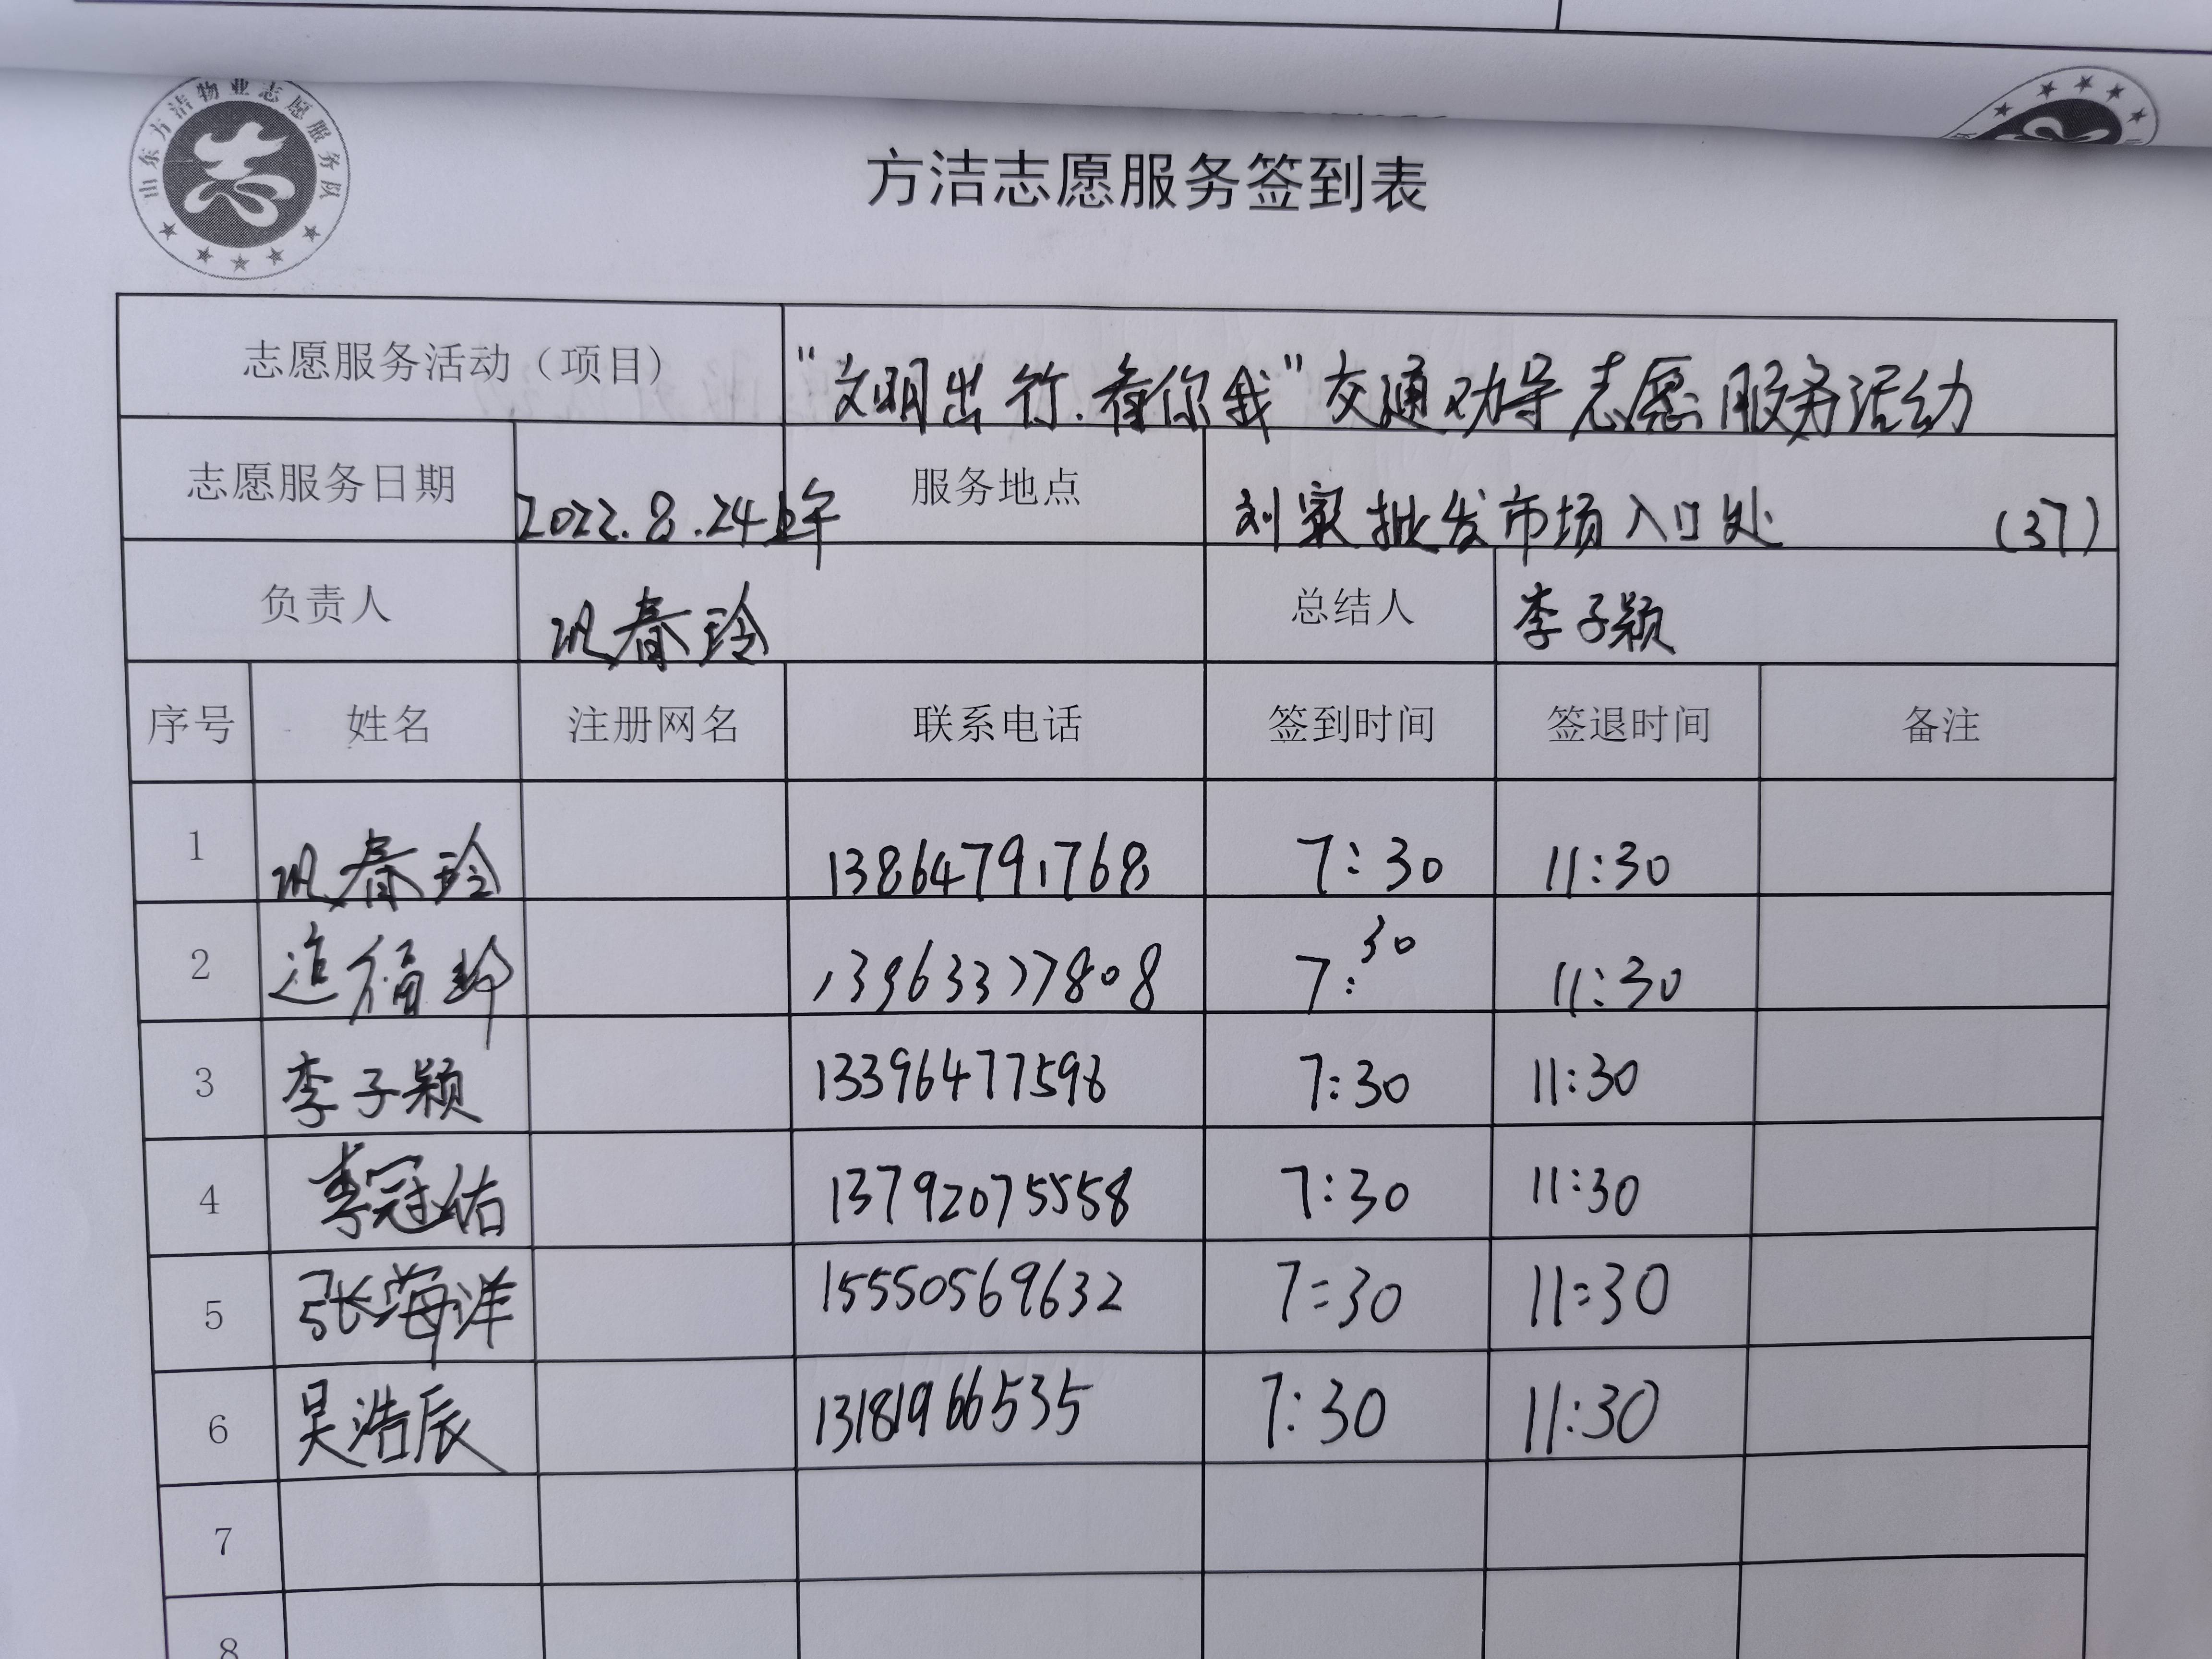 山东方洁物业志愿服务队
方洁志愿服务签到表
志愿服务活动（项目） "文明出行.有你我"交通劝导志愿服务活动
志愿服务日期 2022.8.24上午 服务地点 刘家批发市场入口处 (37)
负责人 巩春玲 总结人 李子颖
序号 姓名 注册网名 联系电话 签到时间 签退时间 备注
1 巩春玲 13864791768 7:30 11:30
2 福 13963377808 7:30 11:30
3 李子颖 13396477598 7:30 11:30
4 李冠佑 13792075558 7:30 11:30
5 张海洋 15550569632 7:30 11:30
6 吴浩辰 13181966535 7:30 11:30
7
8